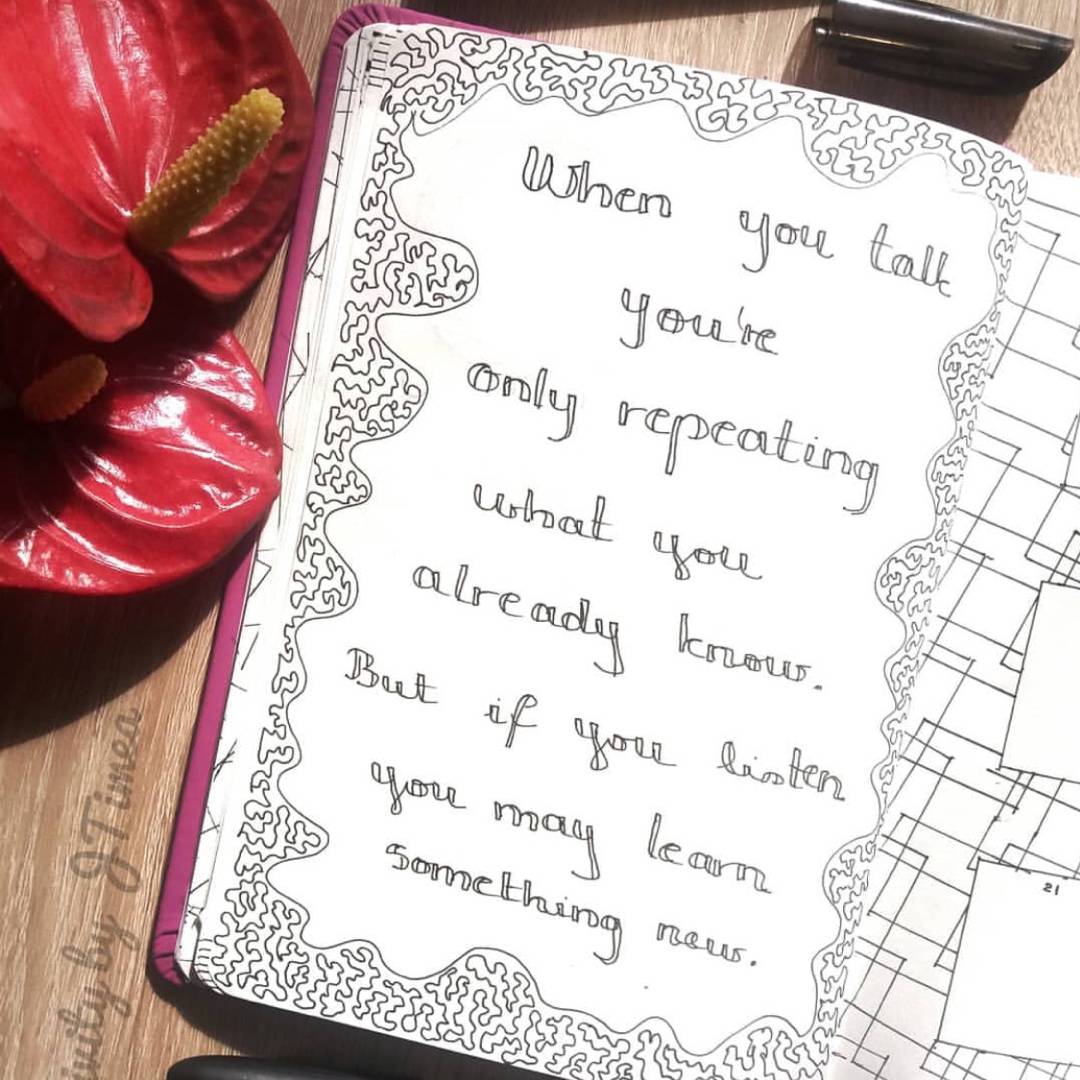 When you talk
you're
only repeating
what you
already know.
But if you listen
you may learn
something new.
21
by JTimea